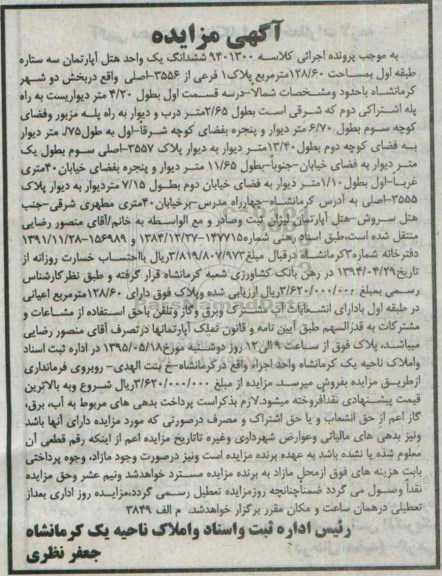 آگهی مزایده
به موجب پرونده اجرائی کلاسه ۹۴۰۱۳۰۰ ششدانگ یک واحد هتل آپارتمان سه ستاره
طبقه اول بمساحت ۱۲۸/۶۰مترمربع پلاک۱ فرعی از ۳۵۵۶-اصلی واقع دربخش دو شهر
کرمانشاه باحدود ومشخصات شمالا-درسه قسمت اول بطول ۴/۲۰ متر دیواریست به راه
پله اشتراکی دوم که شرقی است بطول ۲/۶۵متر درب و دیوار به راه پله مزبور وفضای
کوچه سوم بطول ۶/۷۰ متر دیوار و پنجره بفضای کوچه شرقا-اول به طول ۷۵/. متر دیوار
به فضای کوچه دوم بطول ۱۳/۴۰متر دیوار به دیوار پلاک ۳۵۵۷-اصلی سوم بطول یک
متر دیوار به فضای خیابان-جنوبا-بطول ۱۱/۶۵ متر دیوار و پنجره بفضای خیابان ۴۰متری
غربا-اول بطول ۱/۱۰متر دیوار به فضای خیابان دوم بطول ۷/۱۵ متردیوار به دیوار پلاک
۲۵۵۵-اصلی به آدرس کرمانشاه-چهارراه مدرس-برخیابان ۴۰متری مطهری شرقی-جنب
هتل سروش-هتل آپارتمان لیزان ثبت وصادر و مع الواسطه به خانم/آقای منصور رضایی
منتقل شده است،طبق اسناد رهنی شماره۱۴۷۷۱۵-۱۳۸۴/۱۲/۲۷ و ۱۵۶۹۸۹-۱۳۹۱/۱۱/۲۸
دفترخانه شماره۳کرمانشاه درقبال مبلغ۳/۸۱۹/۸۰۷/۹۷۳ریال بااحتساب خسارت روزانه از
تاریخ۱۳۹۴/۰۴/۲۹ در رهن بانک کشاورزی شعبه کرمانشاه قرار گرفته و طبق نظرکارشناس
رسمی بمبلغ ۳/۶۲۰/۰۰۰/۰۰۰ریال ارزیابی شده وپلاک فوق دارای ۱۲۸/۶۰مترمربع اعیانی
در طبقه اول بادارای انشعابات آب مشترک وبرق وگاز وتلفن باحق استفاده از مشاعات و
مشترکات به قدرالسهم طبق آیین نامه و قانون تملک آپارتمانها درتصرف آقای منصور رضایی
میباشد، پلاک فوق از ساعت ۹ الی۱۲ روز دوشنبه مورخ۱۳۹۵/۰۵/۱۸ در اداره ثبت اسناد
واملاک ناحیه یک کرمانشاه واحد اجراء واقع درکرمانشاه-خ بنت الهدی- روبروی فرمانداری
ازطریق مزایده بفروش میرسد. مزایده از مبلغ ۳/۶۲۰/۰۰۰/۰۰۰ریال شروع وبه بالاترین
قیمت پیشنهادی نقدافروخته میشود.لازم بذکراست پرداخت بدهی های مربوط به آب، برق،
گاز اعم از حق انشعاب و یا حق اشتراک و مصرف درصورتی که مورد مزایده دارای آنها باشد
ونیز بدهی های مالیاتی وعوارض شهرداری وغیره تاتاریخ مزایده اعم از اینکه رقم قطعی آن
معلوم شده یا نشده باشد به عهده برنده مزایده است ونیز درصورت وجود مازاد، وجوه پرداختی
بابت هزینه های فوق ازمحل مازاد به برنده مزایده مسترد خواهدشد ونیم عشر وحق مزایده
نقدا وصول می گردد ضمناچنانچه روزمزایده تعطیل رسمی گردد،مزایده روز اداری بعداز
تعطیلی درهمان ساعت و مکان مقرر برگزار خواهدشد. م الف ۳۸۴۹
رئیس اداره ثبت واسناد واملاک ناحیه یک کرمانشاه
جعفر نظری